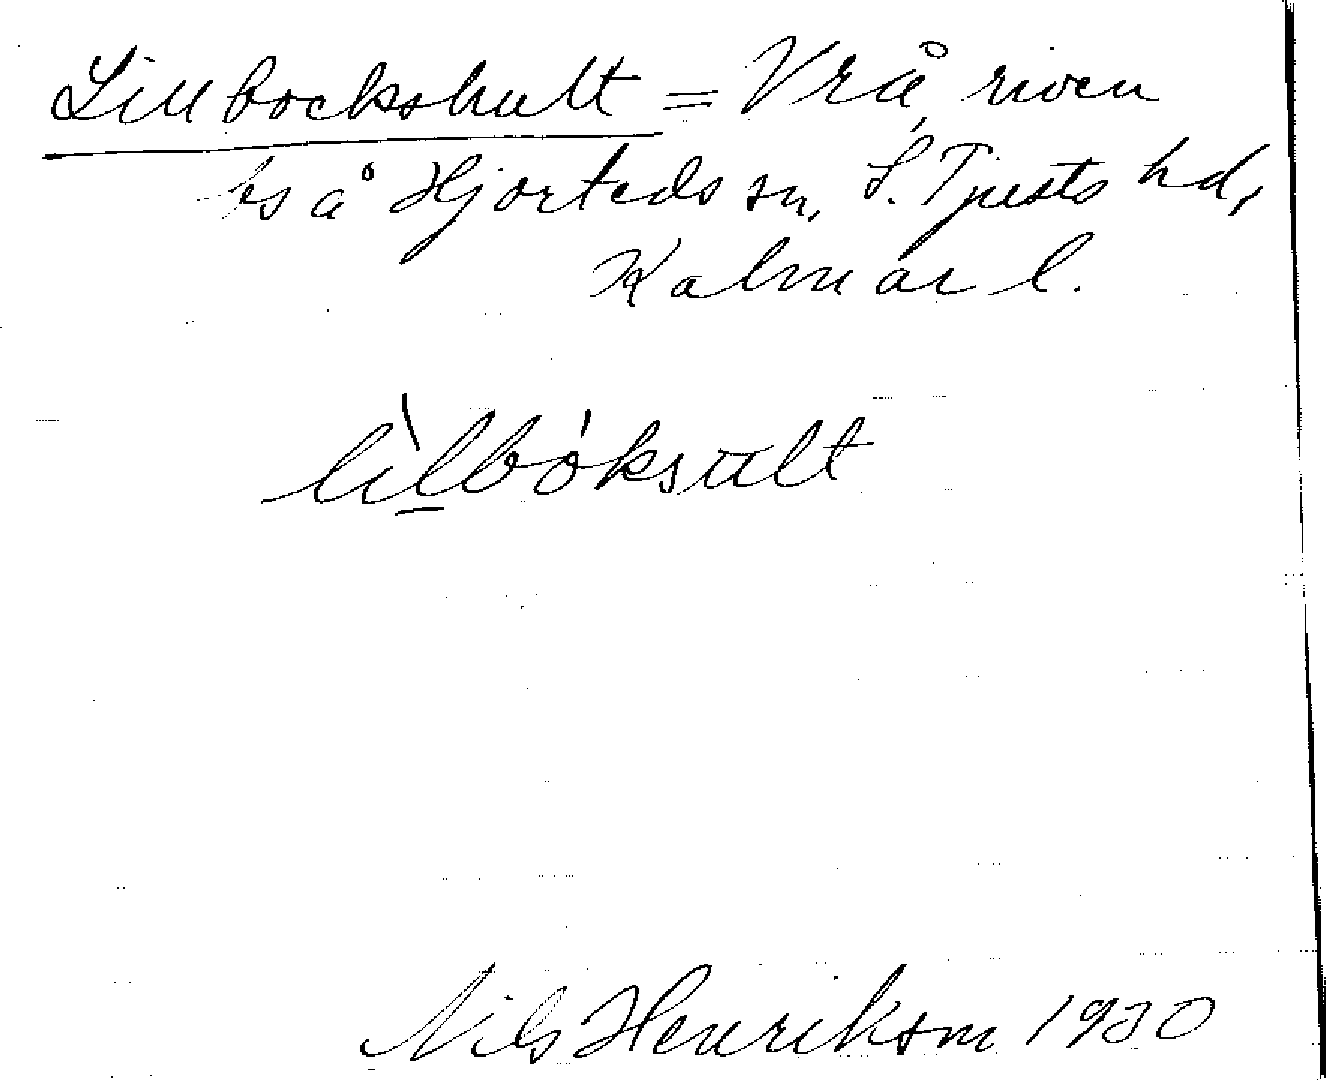 Lillbockshult = Vrå, riven
bs å Hjorteds sn, S. Tjusts hd,
Kalmar l.
lìlbóksult
Nils Henrikson 1930